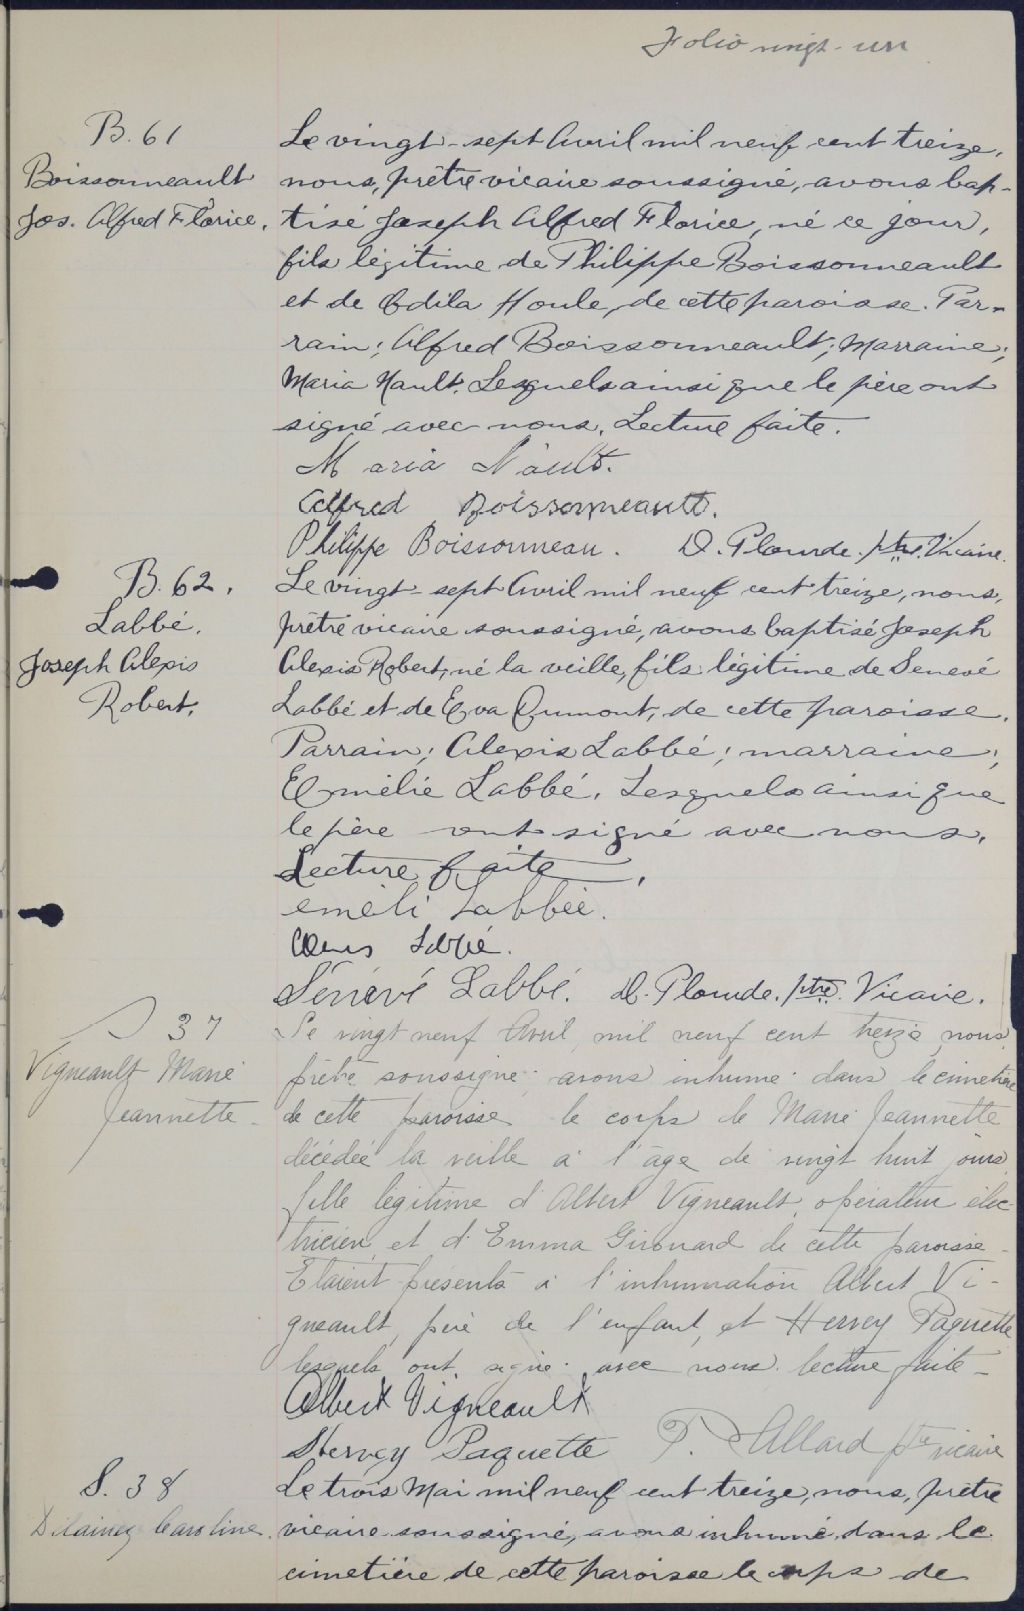 Folio vingt-un
B. 61
Boissonneault
Jos. Alfred Florice.
Le vingt-sept Avril mil neuf cent treize,
nous, prêtre vicaire soussigné, avons bap-
tisé Joseph Alfred Florice, né ce jour,
fils légitime de Philippe Boissonneault
et de Edila Houle, de cette paroisse. Par-
rain; Alfred Boissonneault; Marraine;
Maria Nault. Lesquels ainsi que le père ont
signé avec nous. Lecture faite.
Maria Nault.
Alfred Boissonneault.
Philippe Boissonneau. D. Plourde. ptre. Vicaire.
B. 62.
Labbé.
Joseph Alexis
Robert.
Le vingt-sept Avril mil neuf cent treize, nous,
prêtre vicaire soussigné, avons baptisé Joseph
Alexis Robert, né la veille, fils légitime de Senevé
Labbé et de Eva Dumont, de cette paroisse.
Parrain; Alexis Labbé; marraine;
Emélie Labbé. Lesquels ainsi que
le père ont signé avec nous.
Lecture faite.
eméli Labbée.
Labbé.
Sénevé Labbé. D. Plourde. ptre. Vicaire.
S 37
Vigneault Marie
Jeannette
Le vingt neuf Avril, mil neuf cent treize nous
prêtre soussigné avons inhumé dans le cimetière
de cette paroisse le corps de Marie Jeannette
décédée la veille à l'âge de vingt huit jours
fille légitime d'Albert Vigneault, opérateur élec-
tricien, et d'Emma Girouard de cette paroisse
Etaient présents à l'inhumation Albert Vi-
gneault, père de l'enfant, et Hervey Paquette
lesquels ont signé avec nous. lecture faite
Albert Vigneault
Hervey Paquette P. Allard ptre vicaire
S. 38
Caroline.
Le trois Mai mil neuf cent treize, nous, prêtre
vicaire soussigné, avons inhumé dans le
cimetière de cette paroisse le corps de